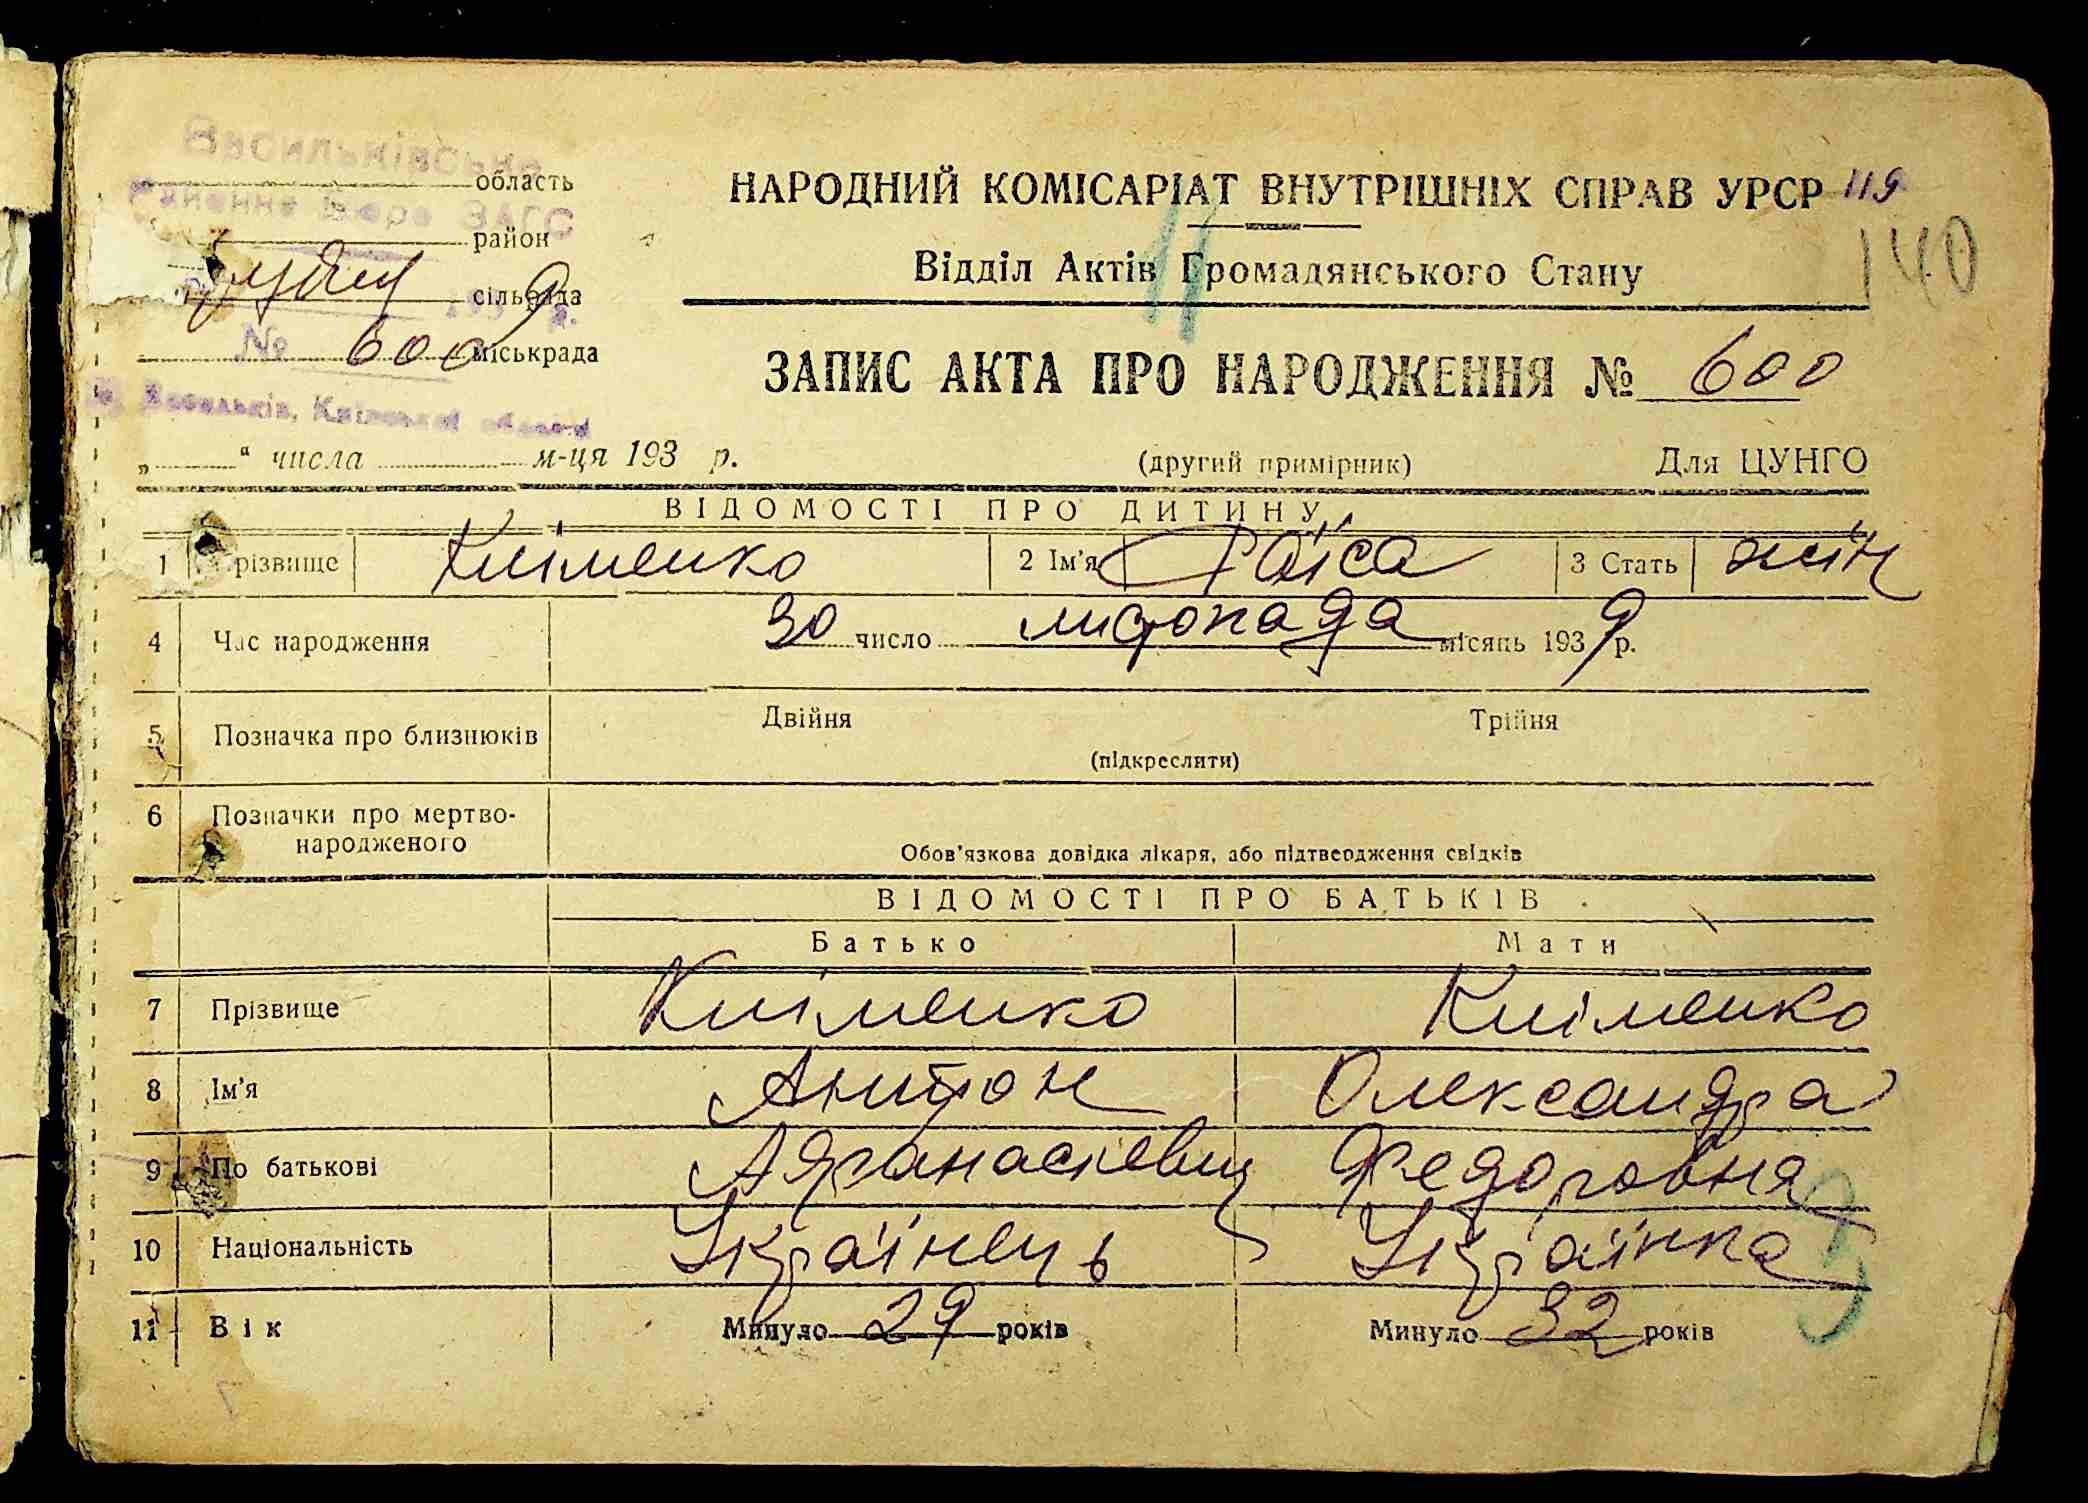 Васильківське
область
Районне Бюро ЗАГС
район
сільрада
193 9 р.
№ 600 міськрада
м. Васильків, Київської області
„ “ числа м-ця 193 р.
НАРОДНИЙ КОМІСАРІАТ ВНУТРІШНІХ СПРАВ УРСР 119
140
Відділ Актів Громадянського Стану
11
ЗАПИС АКТА ПРО НАРОДЖЕННЯ № 600
(другий примірник) Для ЦУНГО
ВІДОМОСТІ ПРО ДИТИНУ
1 Прізвище Кліменко 2 Ім'я Раїса 3 Стать жін
4 Час народження 30 число листопада місяць 1939 р.
5 Позначка про близнюків Двійня Трійня
(підкреслити)
6 Позначки про мертво-
народженого
Обов'язкова довідка лікаря, або підтвердження свідків
ВІДОМОСТІ ПРО БАТЬКІВ
Батько Мати
7 Прізвище Кліменко Кліменко
8 Ім'я Антон Олександра
9 По батькові Афанасієвич Федоровна
10 Національність Українець Українка
11 Вік Минуло 29 років Минуло 32 років